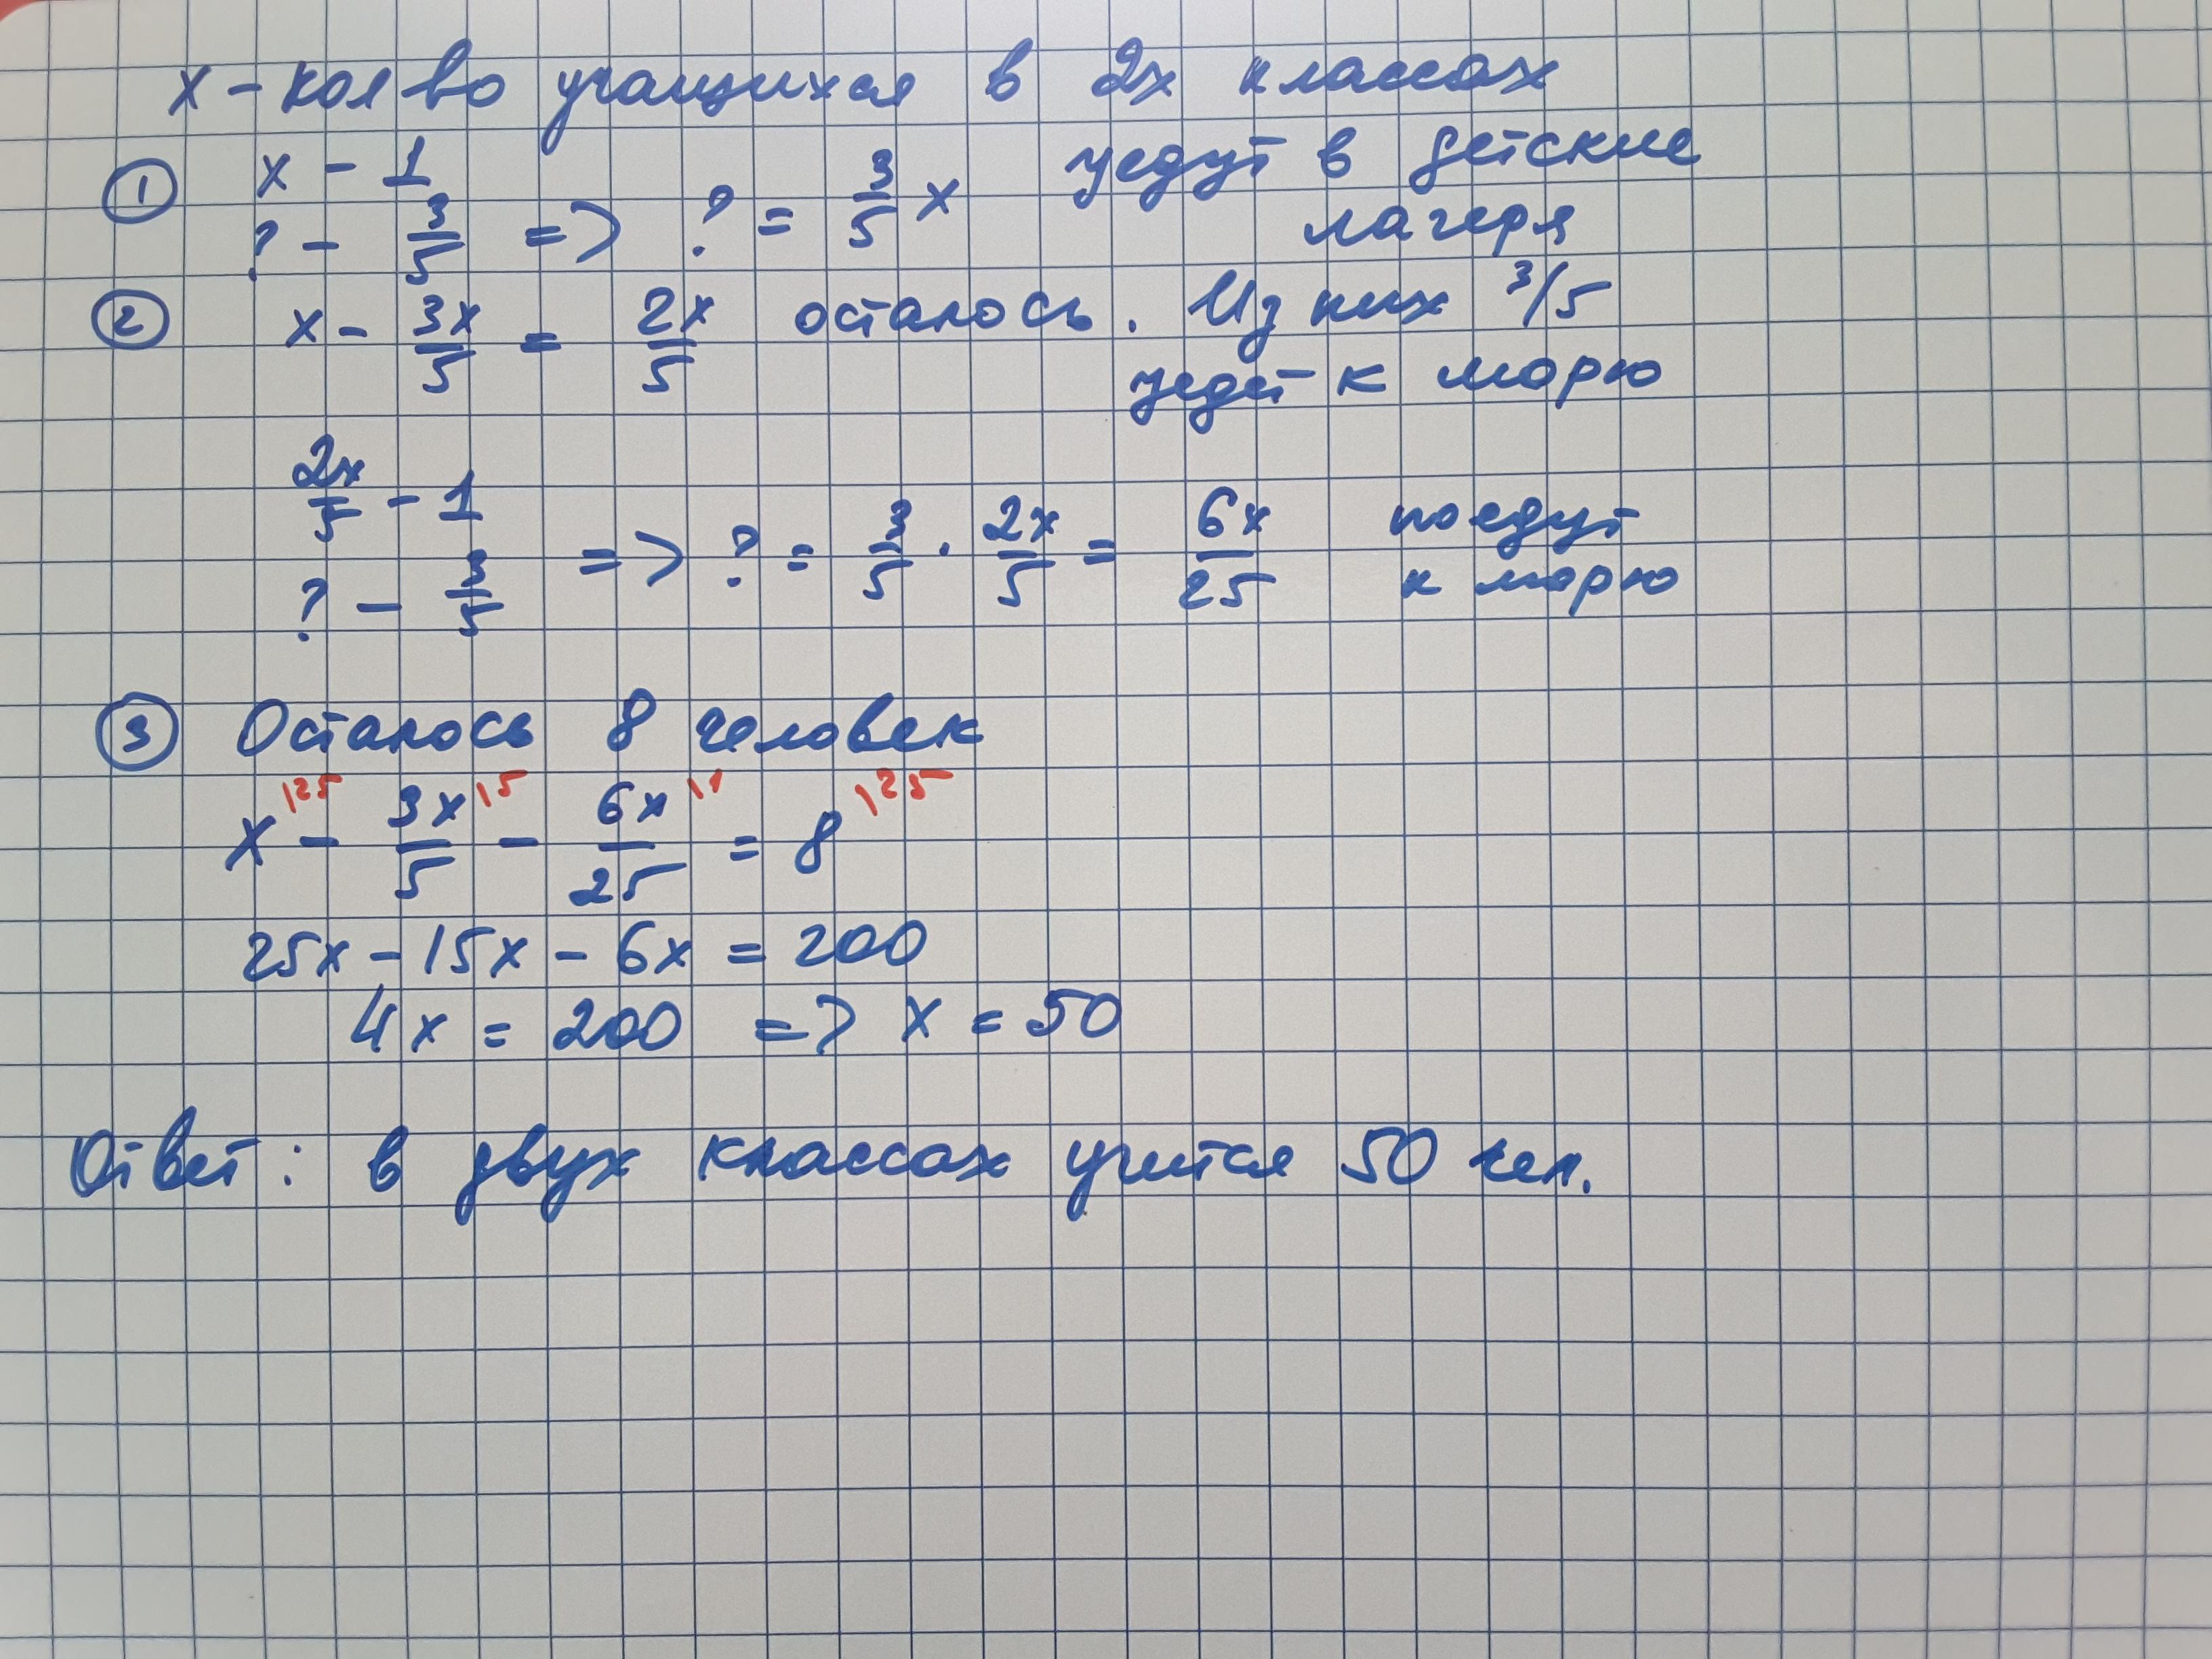 x - кол во учащихся в 2х классах
① x - 1
? - 3/5 => ? = 3/5 x уедут в детские
лагеря
② x - 3x/5 = 2x/5 осталось. Из них 3/5
уедет к морю
2x/5 - 1
? - 3/5 => ? = 3/5 · 2x/5 = 6x/25 поедут
к морю
③ Осталось 8 человек
x\25 - 3x/5\5 - 6x/25\1 = 8\25
25x - 15x - 6x = 200
4x = 200 => x = 50
Ответ: в двух классах учится 50 чел.